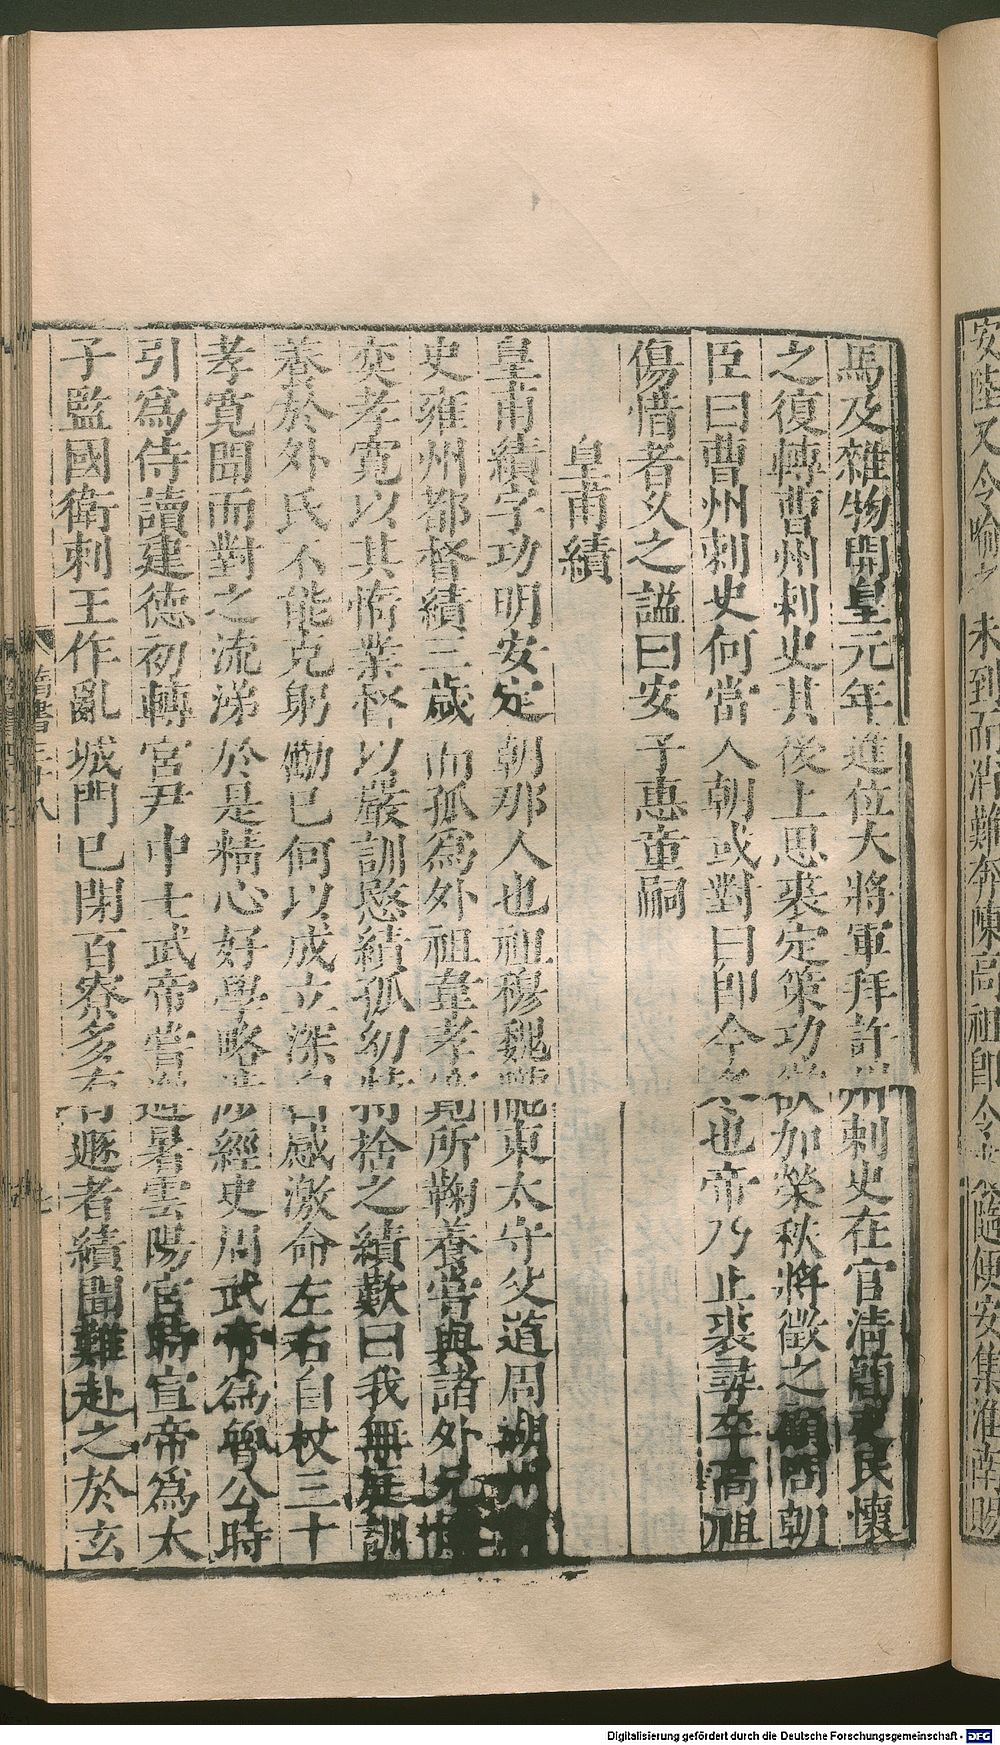 安陸又令喻之未到而消難奔陳高祖即令隨便安集淮南賜
馬及雜物開皇元年進位大將軍拜許州刺史在官清簡吏民懷
之復轉曹州刺史其後上思裘定策功欲加榮秩將徵之顧問朝
臣曰曹州刺史何當入朝或對曰即今冬也帝乃止裘尋卒高祖
傷惜者久之諡曰安子惠童嗣
皇甫績
皇甫績字功明安定朝那人也祖穆魏隴東太守父道周湖州
史雍州都督績三歲而孤為外祖韋孝寬所鞠養嘗與諸外兄
奕孝寬以其惰業督以嚴訓愍績孤幼特捨之績歎曰我無庭訓
養於外氏不能克躬勵己何以成立深自感激命左右自杖三十
孝寬聞而對之流涕於是精心好學略涉經史周武帝為魯公時
引為侍讀建德初轉宮尹中士武帝嘗避暑雲陽宮時宣帝為太
子監國衛刺王作亂城門已閉百寮多有遯者績聞難赴之於玄
隋書三十八
Digitalisierung gefördert durch die Deutsche Forschungsgemeinschaft - DFG